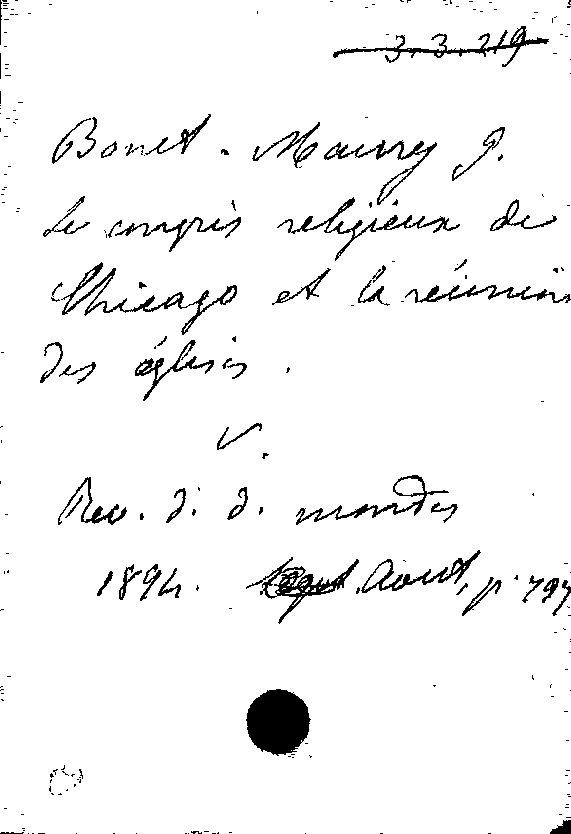 3.3.219
Bonet-Maury G.
Le congrès religieux de
Chicago et la réunion
des églises.
V.
Rev. d. d. mondes
1894. Aout, p. 797